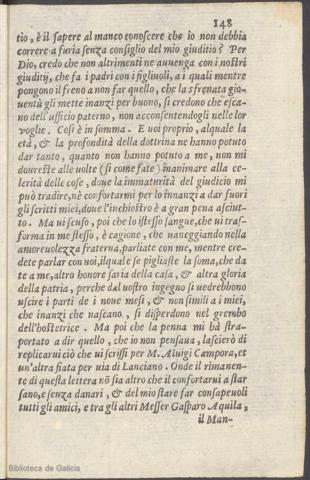 148
tio, è il sapere al manco conoscere che io non debbia
correre a furia senza consiglio del mio giuditio? Per
Dio, credo che non altrimenti ne auuenga con i nostri
giuditij, che fa i padri con i figliuoli, a i quali mentre
pongono il freno a non far quello, che la sfrenata gio-
uentù gli mette inanzi per buono, si credono che esca-
no dell'ufficio paterno, non acconsentendogli nelle lor
voglie. Cosi è in somma. E uoi proprio, alquale la
età, & la profondità della dottrina ne hanno potuto
dar tanto, quanto non hanno potuto a me, non mi
doureste alle uolte (si come fate) inanimare a la ce-
lerità delle cose, doue la immaturità del giudicio mi
può tradire, nè confortarmi per lo innanzi a dar fuori
gli scritti miei, doue l'inchiostro è a gran pena asciut-
to. Ma ui scuso, poi che lo istesso sangue, che ui tras-
forma in me stesso, è cagione, che uaneggiando nella
amoreuolezza fraterna, parliate con me, mentre cre-
dete parlar con uoi, ilquale se pigliaste la soma, che da
te a me, altro honore saria della casa, & altra gloria
della patria, perche dal uostro ingegno si uedrebbono
uscire i parti de i noue mesi, & non simili a i miei,
che inanzi che nascano, si disperdono nel grembo
dell'hostetrice. Ma poi che la penna mi hà stra-
portato a dir quello, che io non pensaua, lascierò di
replicarui ciò che ui scrissi per M. Aluigi Campora, et
un'altra fiata per uia di Lanciano. Onde il rimanen-
te di questa lettera nō sia altro che il confortarui a star
sano, e senza danari, & del mio stare far consapeuoli
tutti gli amici, e tra gli altri Messer Gasparo Aquila,
il Man-
Biblioteca de Galicia